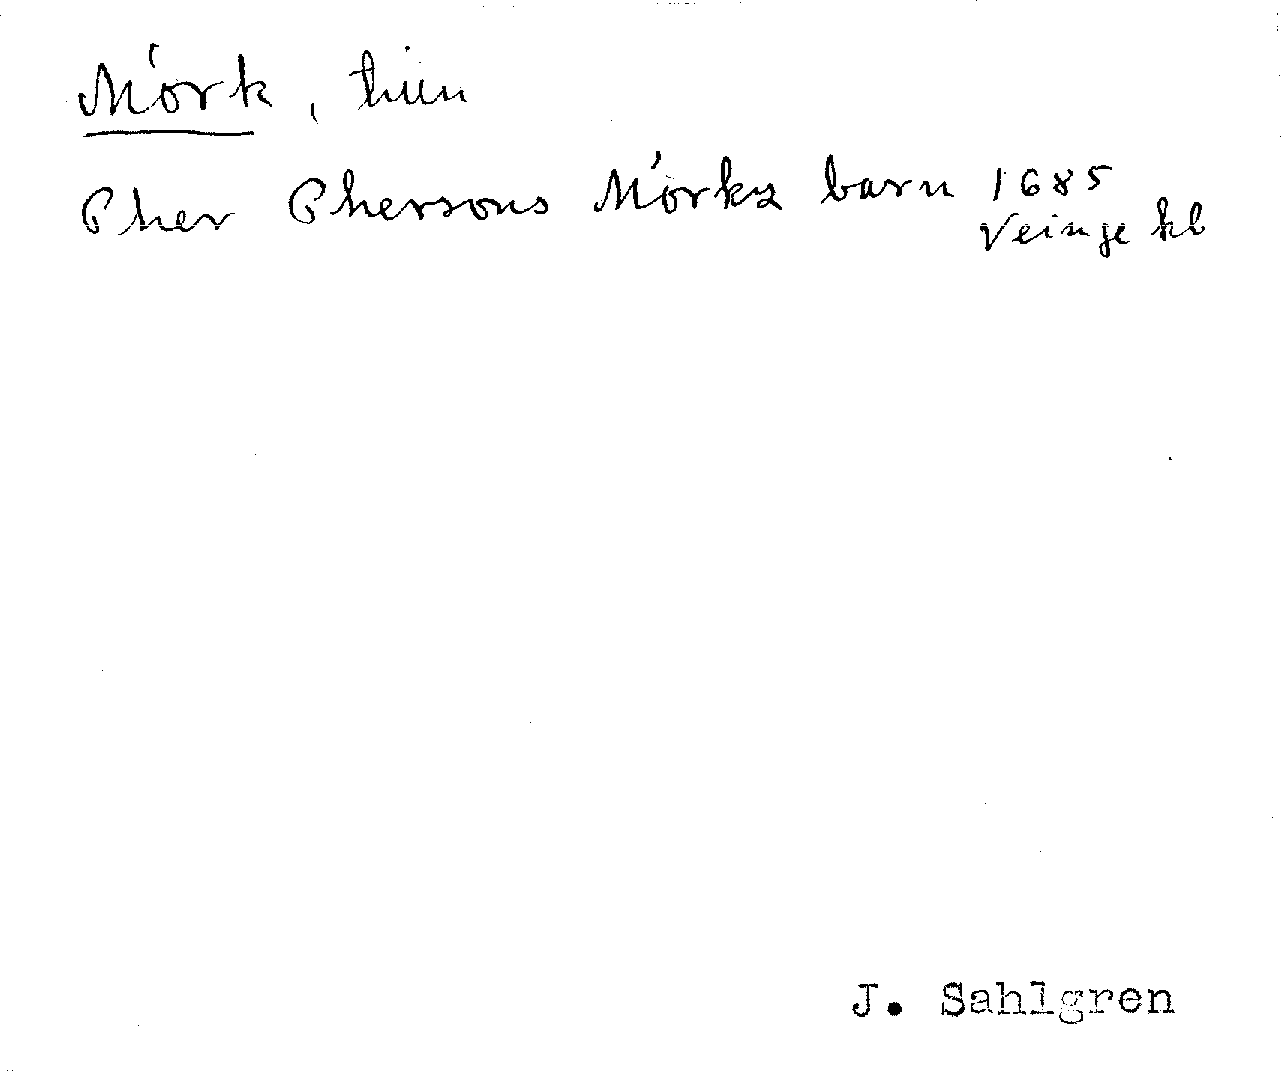 Mörk,
Pher Phersons Mörkz barn 1685
Veinge kb
J. Sahlgren